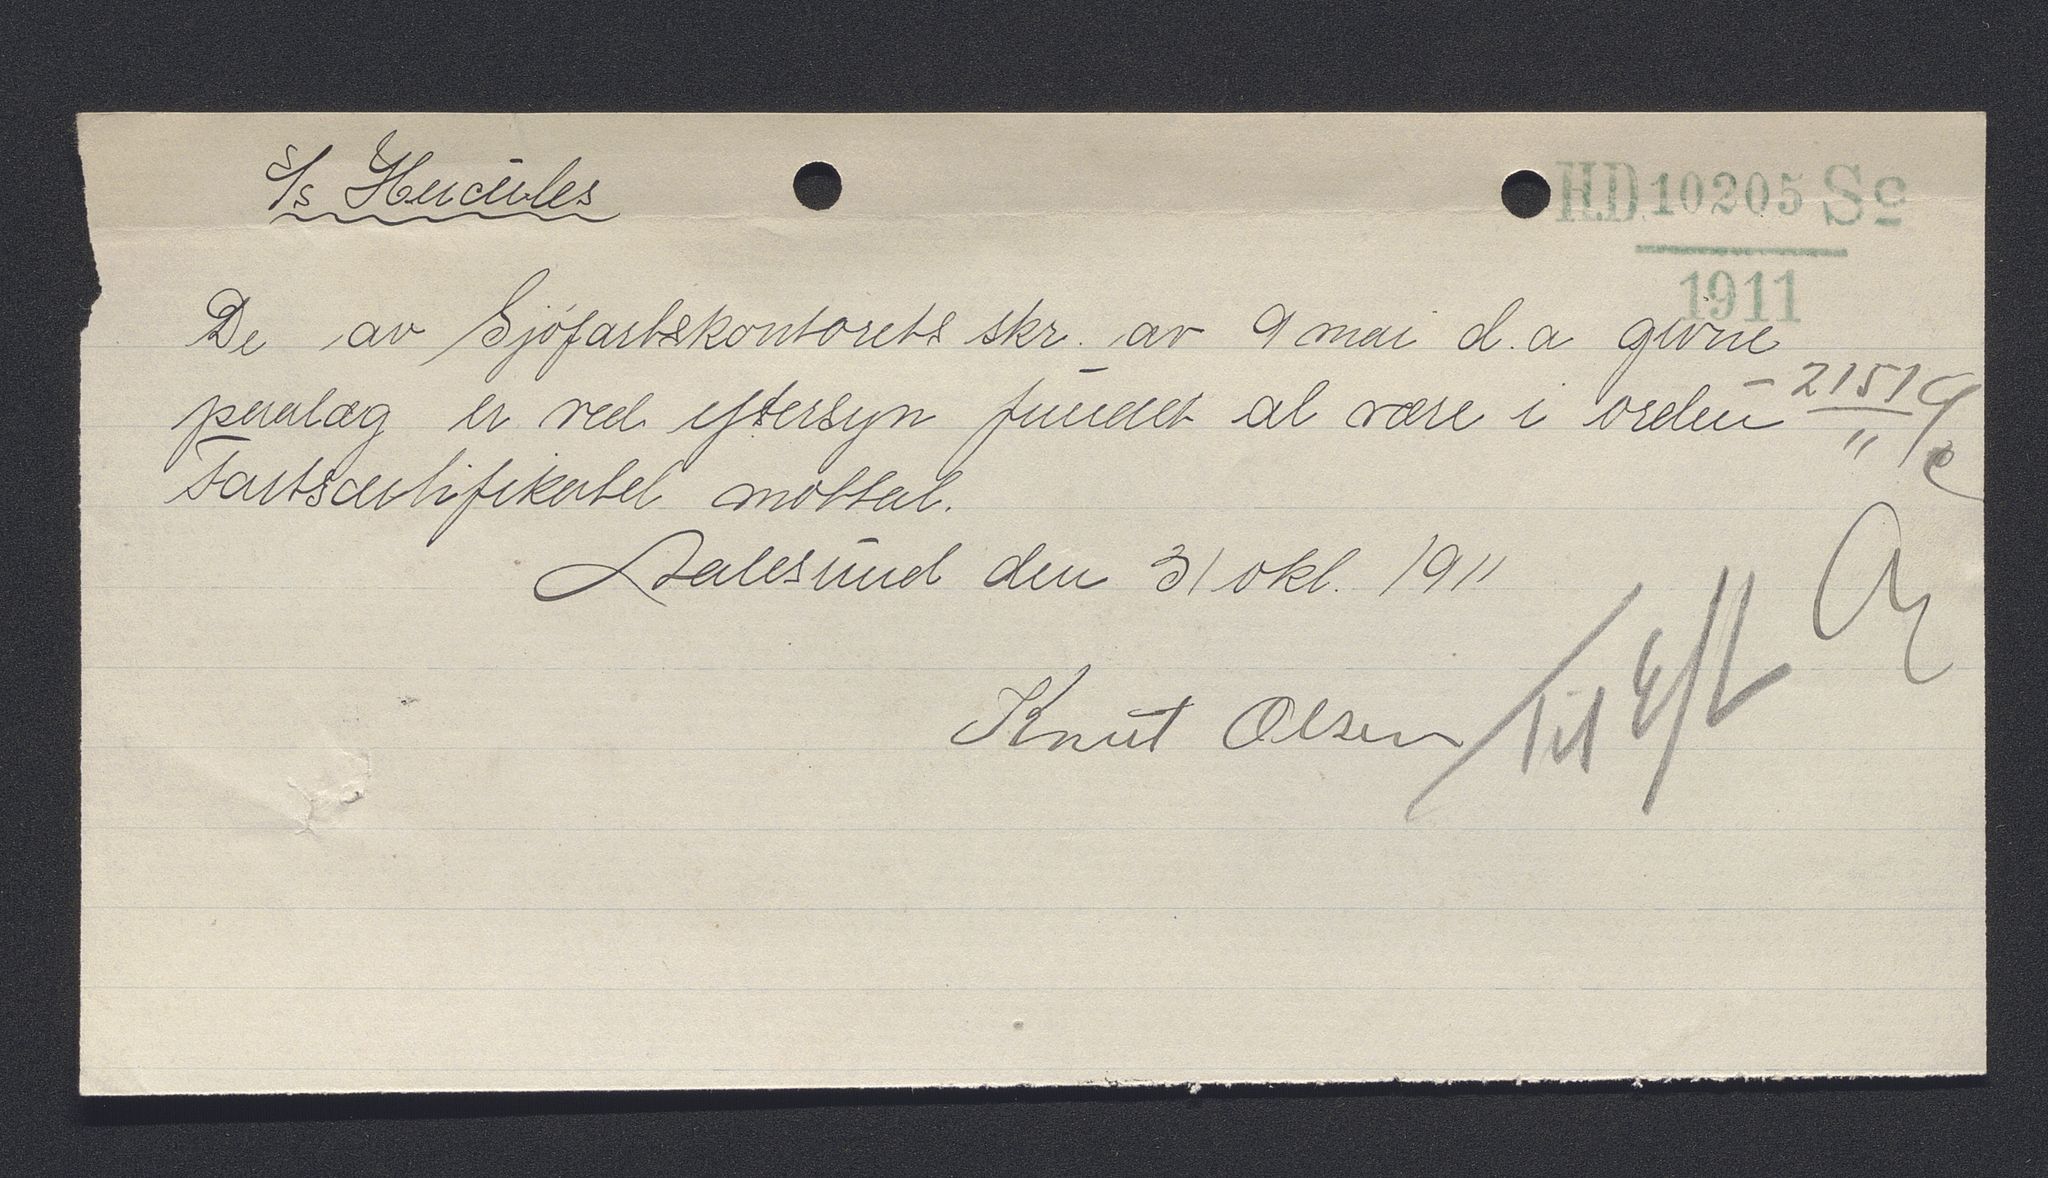 S/S Hercules
HD 10205 Sc
1911
De av Sjøfartskontorets skr. av 9 mai d.a givne
paalæg er ved eftersyn fundet at være i orden
Fartscertifikatet mottat.
Aalesund den 31 okt. 1911
Knut Olsen
Til